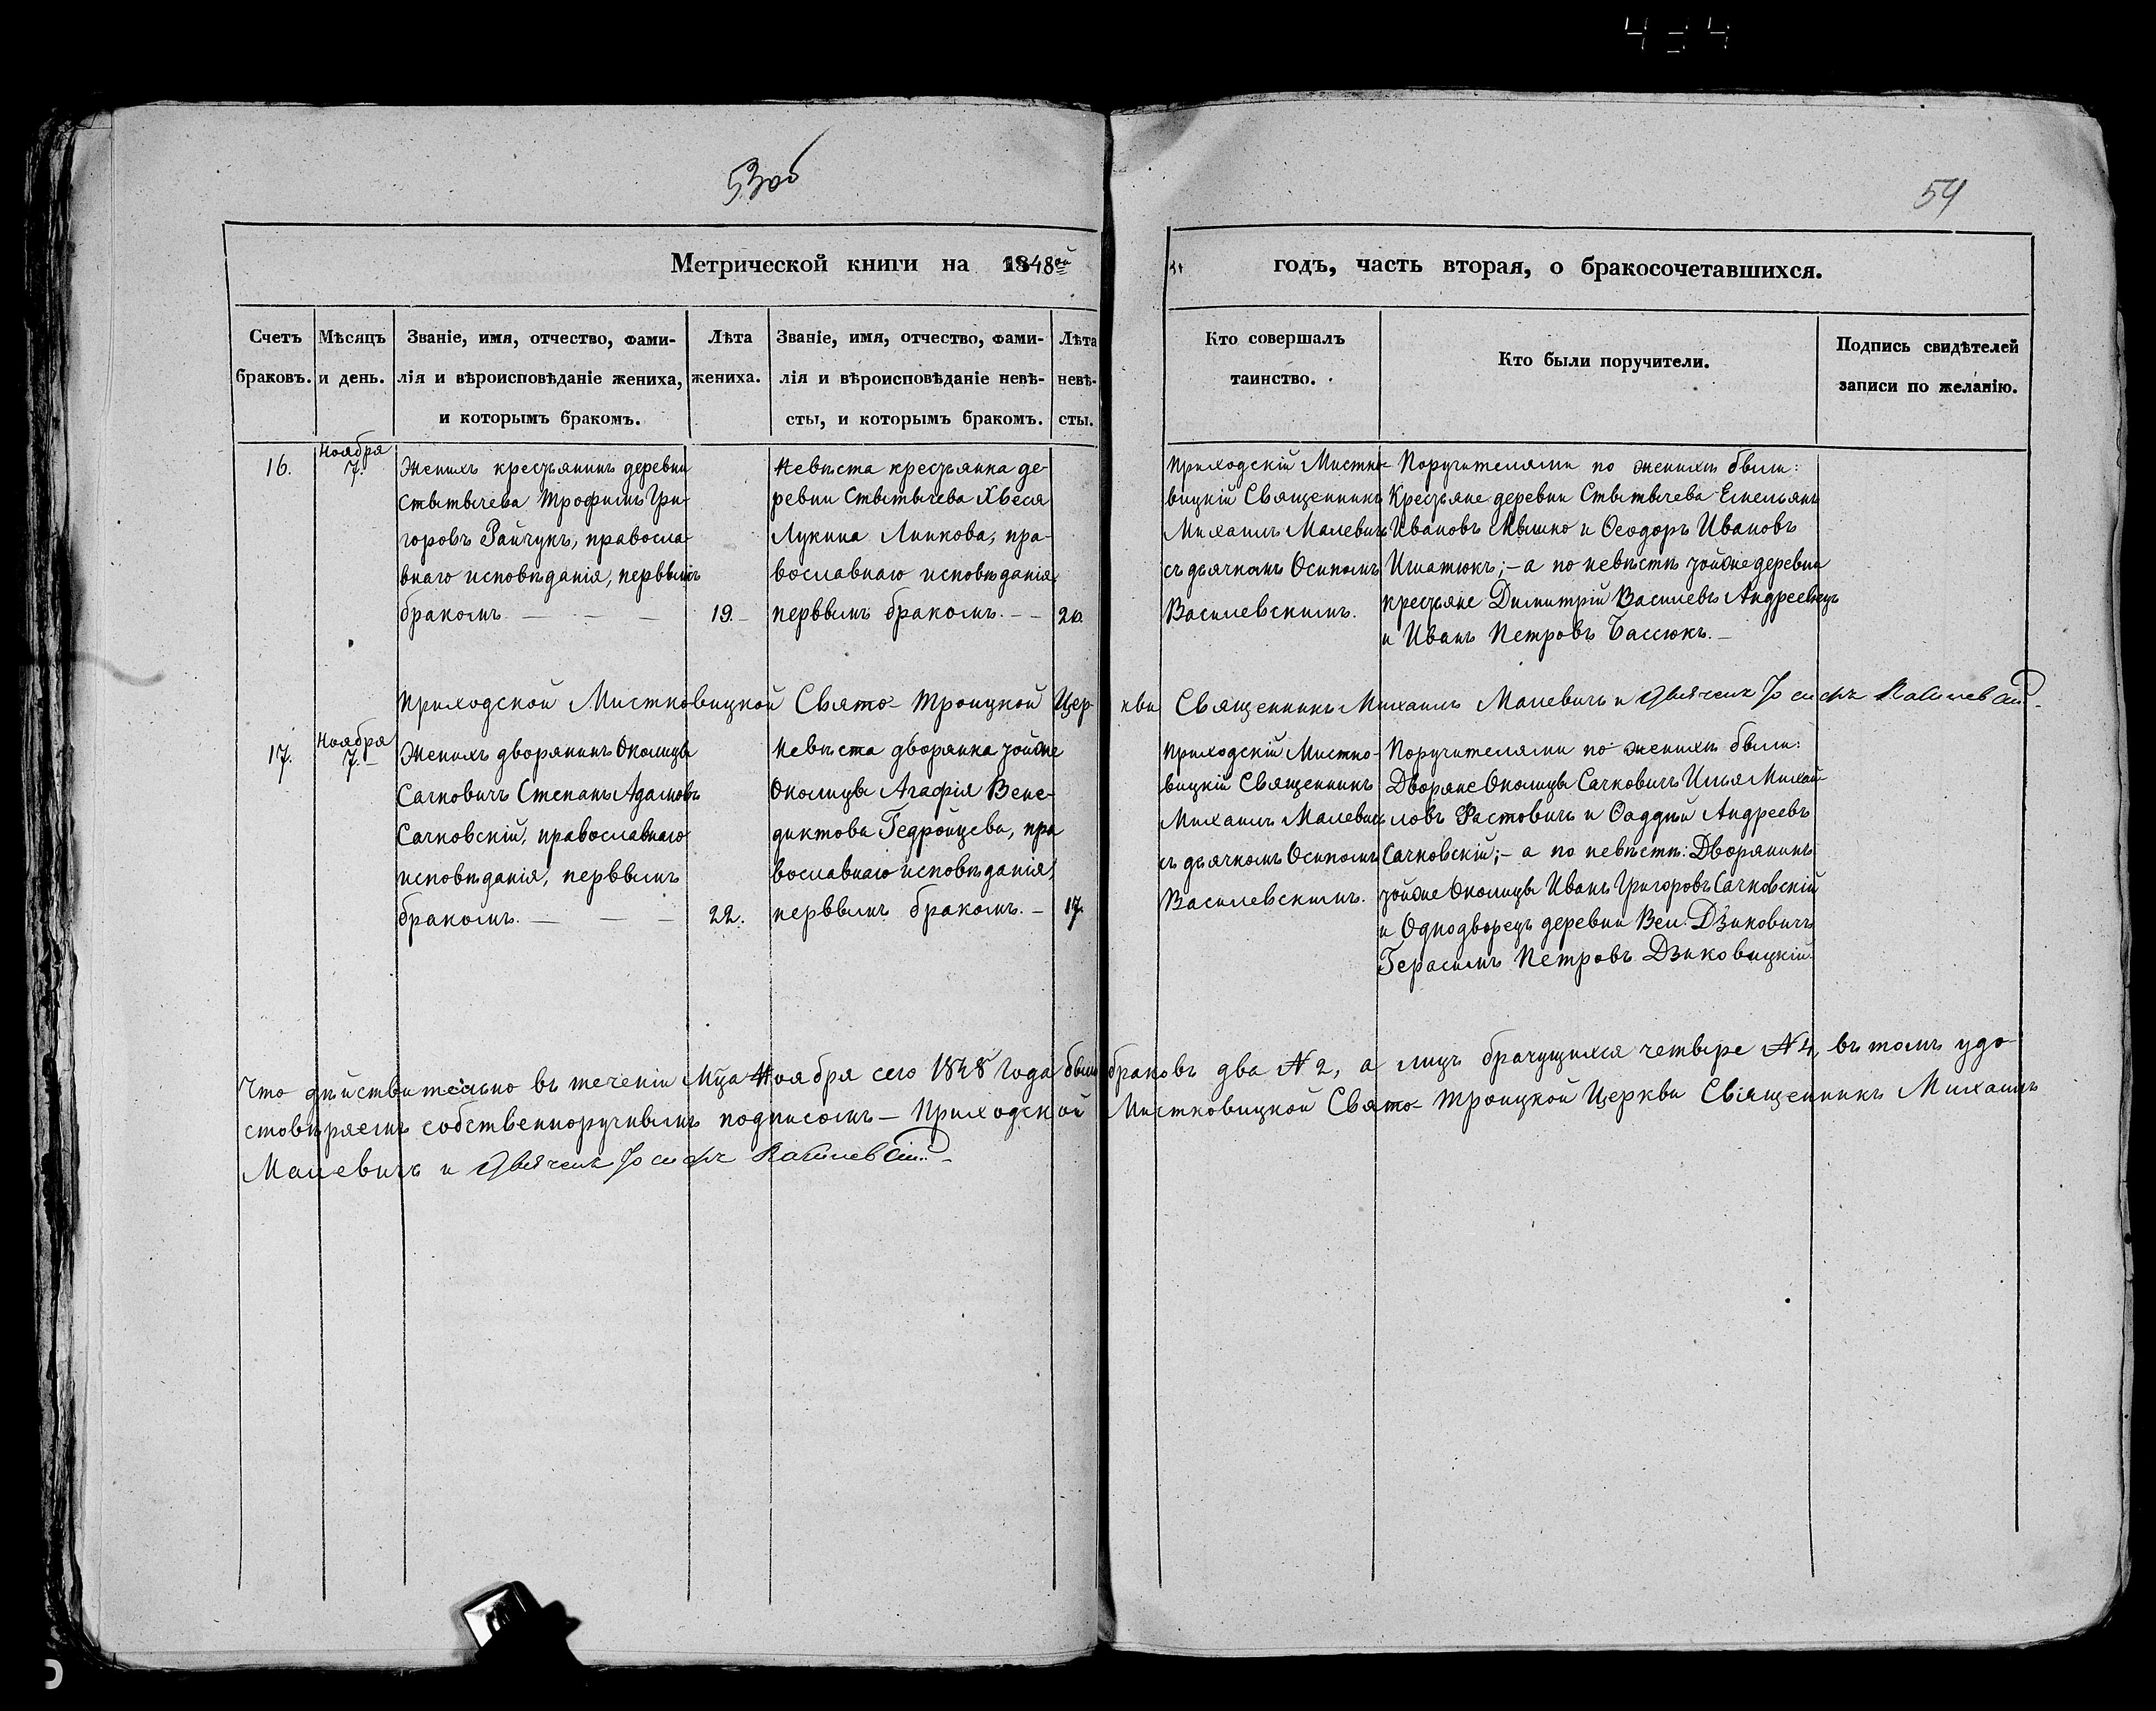 434
53об
54
Метрической книги на 1848ой
годъ, часть вторая, о бракосочетавшихся.
Счетъ браковъ.
Мѣсяцъ и день.
Званіе, имя, отчество, фами-
лія и вѣроисповѣданіе жениха,
и которымъ бракомъ.
Лѣта
жениха.
Званіе, имя, отчество, фами-
лія и вѣроисповѣданіе невѣ-
сты, и которымъ бракомъ.
Лѣта
невѣ-
сты.
Кто совершалъ
таинство.
Кто были поручители.
Подпись свидѣтелей
записи по желанію.
16.
Ноября
7.
Женихъ крестьянинъ деревни
Стытычева Трофимъ Гри-
горовъ Райчукъ, правосла-
внаго исповѣданія, первымъ
бракомъ
19.
Невѣста крестьянка де-
ревни Стытычева Хвеся
Лукина Линкова, пра-
вославнаго исповѣданія
первымъ бракомъ.
20.
Приходскій Мистко-
вицкій Священникъ
Михаилъ Малевичъ
съ дьячкомъ Осипомъ
Василевскимъ.
Поручителями по женихѣ были:
Крестьяне деревни Стытычева Емельянъ
Ивановъ Мышко и Ѳеодоръ Ивановъ
Игнатюкъ; - а по невѣстѣ тойже деревни
крестьяне Димитрій Василевъ Андреевецъ
и Иванъ Петровъ Басюкъ.
Приходской Мистковицкой Свято-Троицкой Цер-
кви Священникъ Михаилъ Малевичъ и Дьячекъ Іосифъ Василевскій
17.
Ноября
7.
Женихъ дворянинъ Околицы
Сачковичъ Степанъ Адамовъ
Сачковскій, православнаго
исповѣданія, первымъ
бракомъ.
22.
Невѣста дворянка тойже
Околицы Агафія Вене-
диктова Гедройцева, пра
вославнаго исповѣданія,
первымъ бракомъ.
17.
Приходскій Мистко-
вицкій Священникъ
Михаилъ Малевичъ
съ дьячкомъ Осипомъ
Василевскимъ.
Поручителями по женихѣ были:
Дворяне Околицы Сачковичъ Илья Михай-
ловъ Фастовичъ и Ѳаддѣй Андреевъ
Сачковскій; - а по невѣстѣ: Дворянинъ
тойже Околицы Иванъ Григоровъ Сачковскій
и Однодворецъ деревни Вел: Дзиковичъ
Герасимъ Петровъ Дзиковицкій.
Что дѣйствительно въ теченіи Мца Ноября сего 1848 года было браковъ два №2, а лицъ брачущихся четыре №4, въ томъ удо-
стовѣряемъ собственноручнымъ подписомъ - Приходской Мистковицкой Свято-Троицкой Церкви Священникъ Михаилъ
Малевичъ и Дьячекъ Іосифъ Василевскій